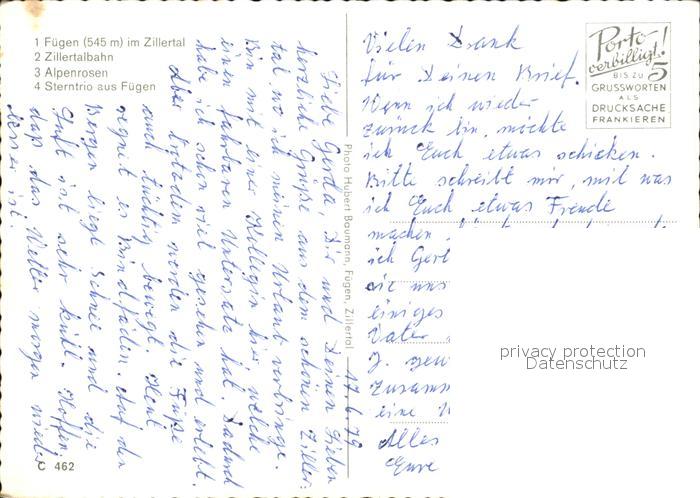 1 Fügen (545 m) im Zillertal
2 Zillertalbahn
3 Alpenrosen
4 Sterntrio aus Fügen
17.6.79
Liebe Gerda, Dir und Deinen Lieben
herzliche Grüße aus dem schönen Ziller-
tal wo ich meinen Urlaub verbringe.
Bin mit einer Kollegin hier welche
einen fahrbaren Untersatz hat. Dadurch
habe ich schon viel gesehen und erlebt.
Aber trotzdem werden die Füße
auch tüchtig bewegt. Heut
regnet es Bindfäden. Auf den
Bergen liegt Schnee und die
Luft ist sehr kühl. Hoffen,
daß das Wetter morgen wieder
besser ist.
C 462
Photo Hubert Baumann, Fügen, Zillertal
Vielen Dank
für Deinen Brief.
Wenn ich wieder
zurück bin, möchte
ich Euch etwas schicken.
Bitte schreibt mir, mit was
ich Euch etwas Freude
machen
ich
die uns
einiges
Vater
J.
Zusamm
eine
Alles
Eure
Porto
verbilligt!
BIS ZU 5
GRUSSWORTEN
ALS
DRUCKSACHE
FRANKIEREN
privacy protection
Datenschutz